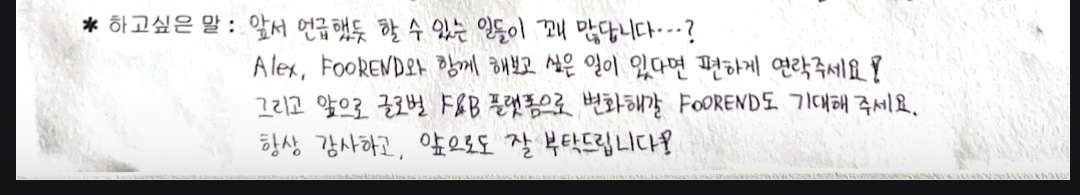 * 하고싶은 말 : 앞서 언급했듯 할 수 있는 일들이 꽤 많답니다...?
Alex, FOOREND와 함께 해보고 싶은 일이 있다면 편하게 연락주세요!
그리고 앞으로 글로벌 F&B 플랫폼으로 변화해갈 FOOREND도 기대해 주세요.
항상 감사하고, 앞으로도 잘 부탁드립니다!